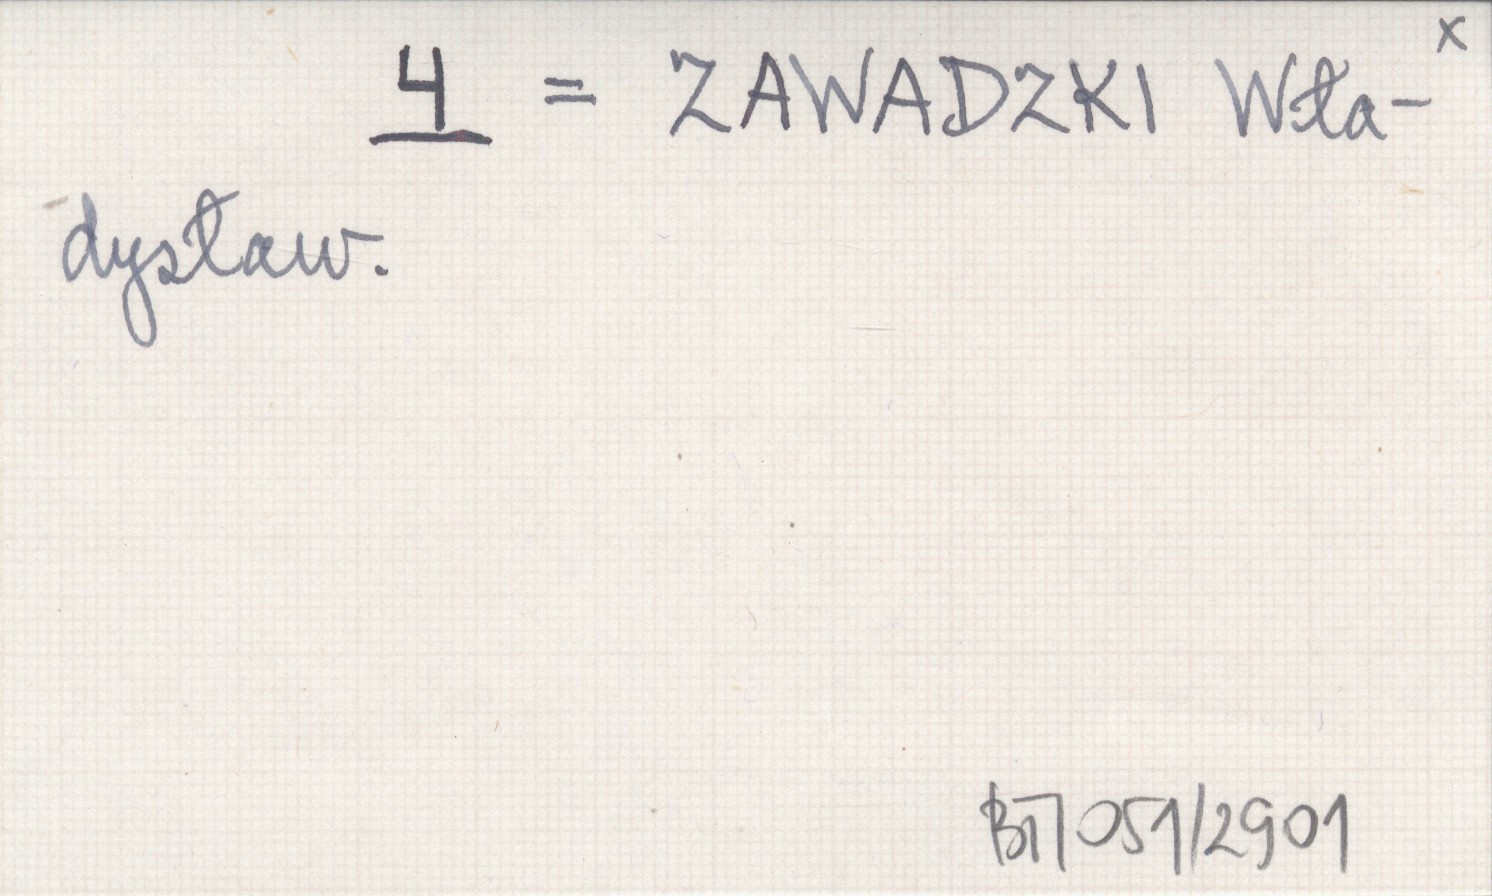 4 = ZAWADZKI Wła- x
dysław.
BŁ 7051/2901